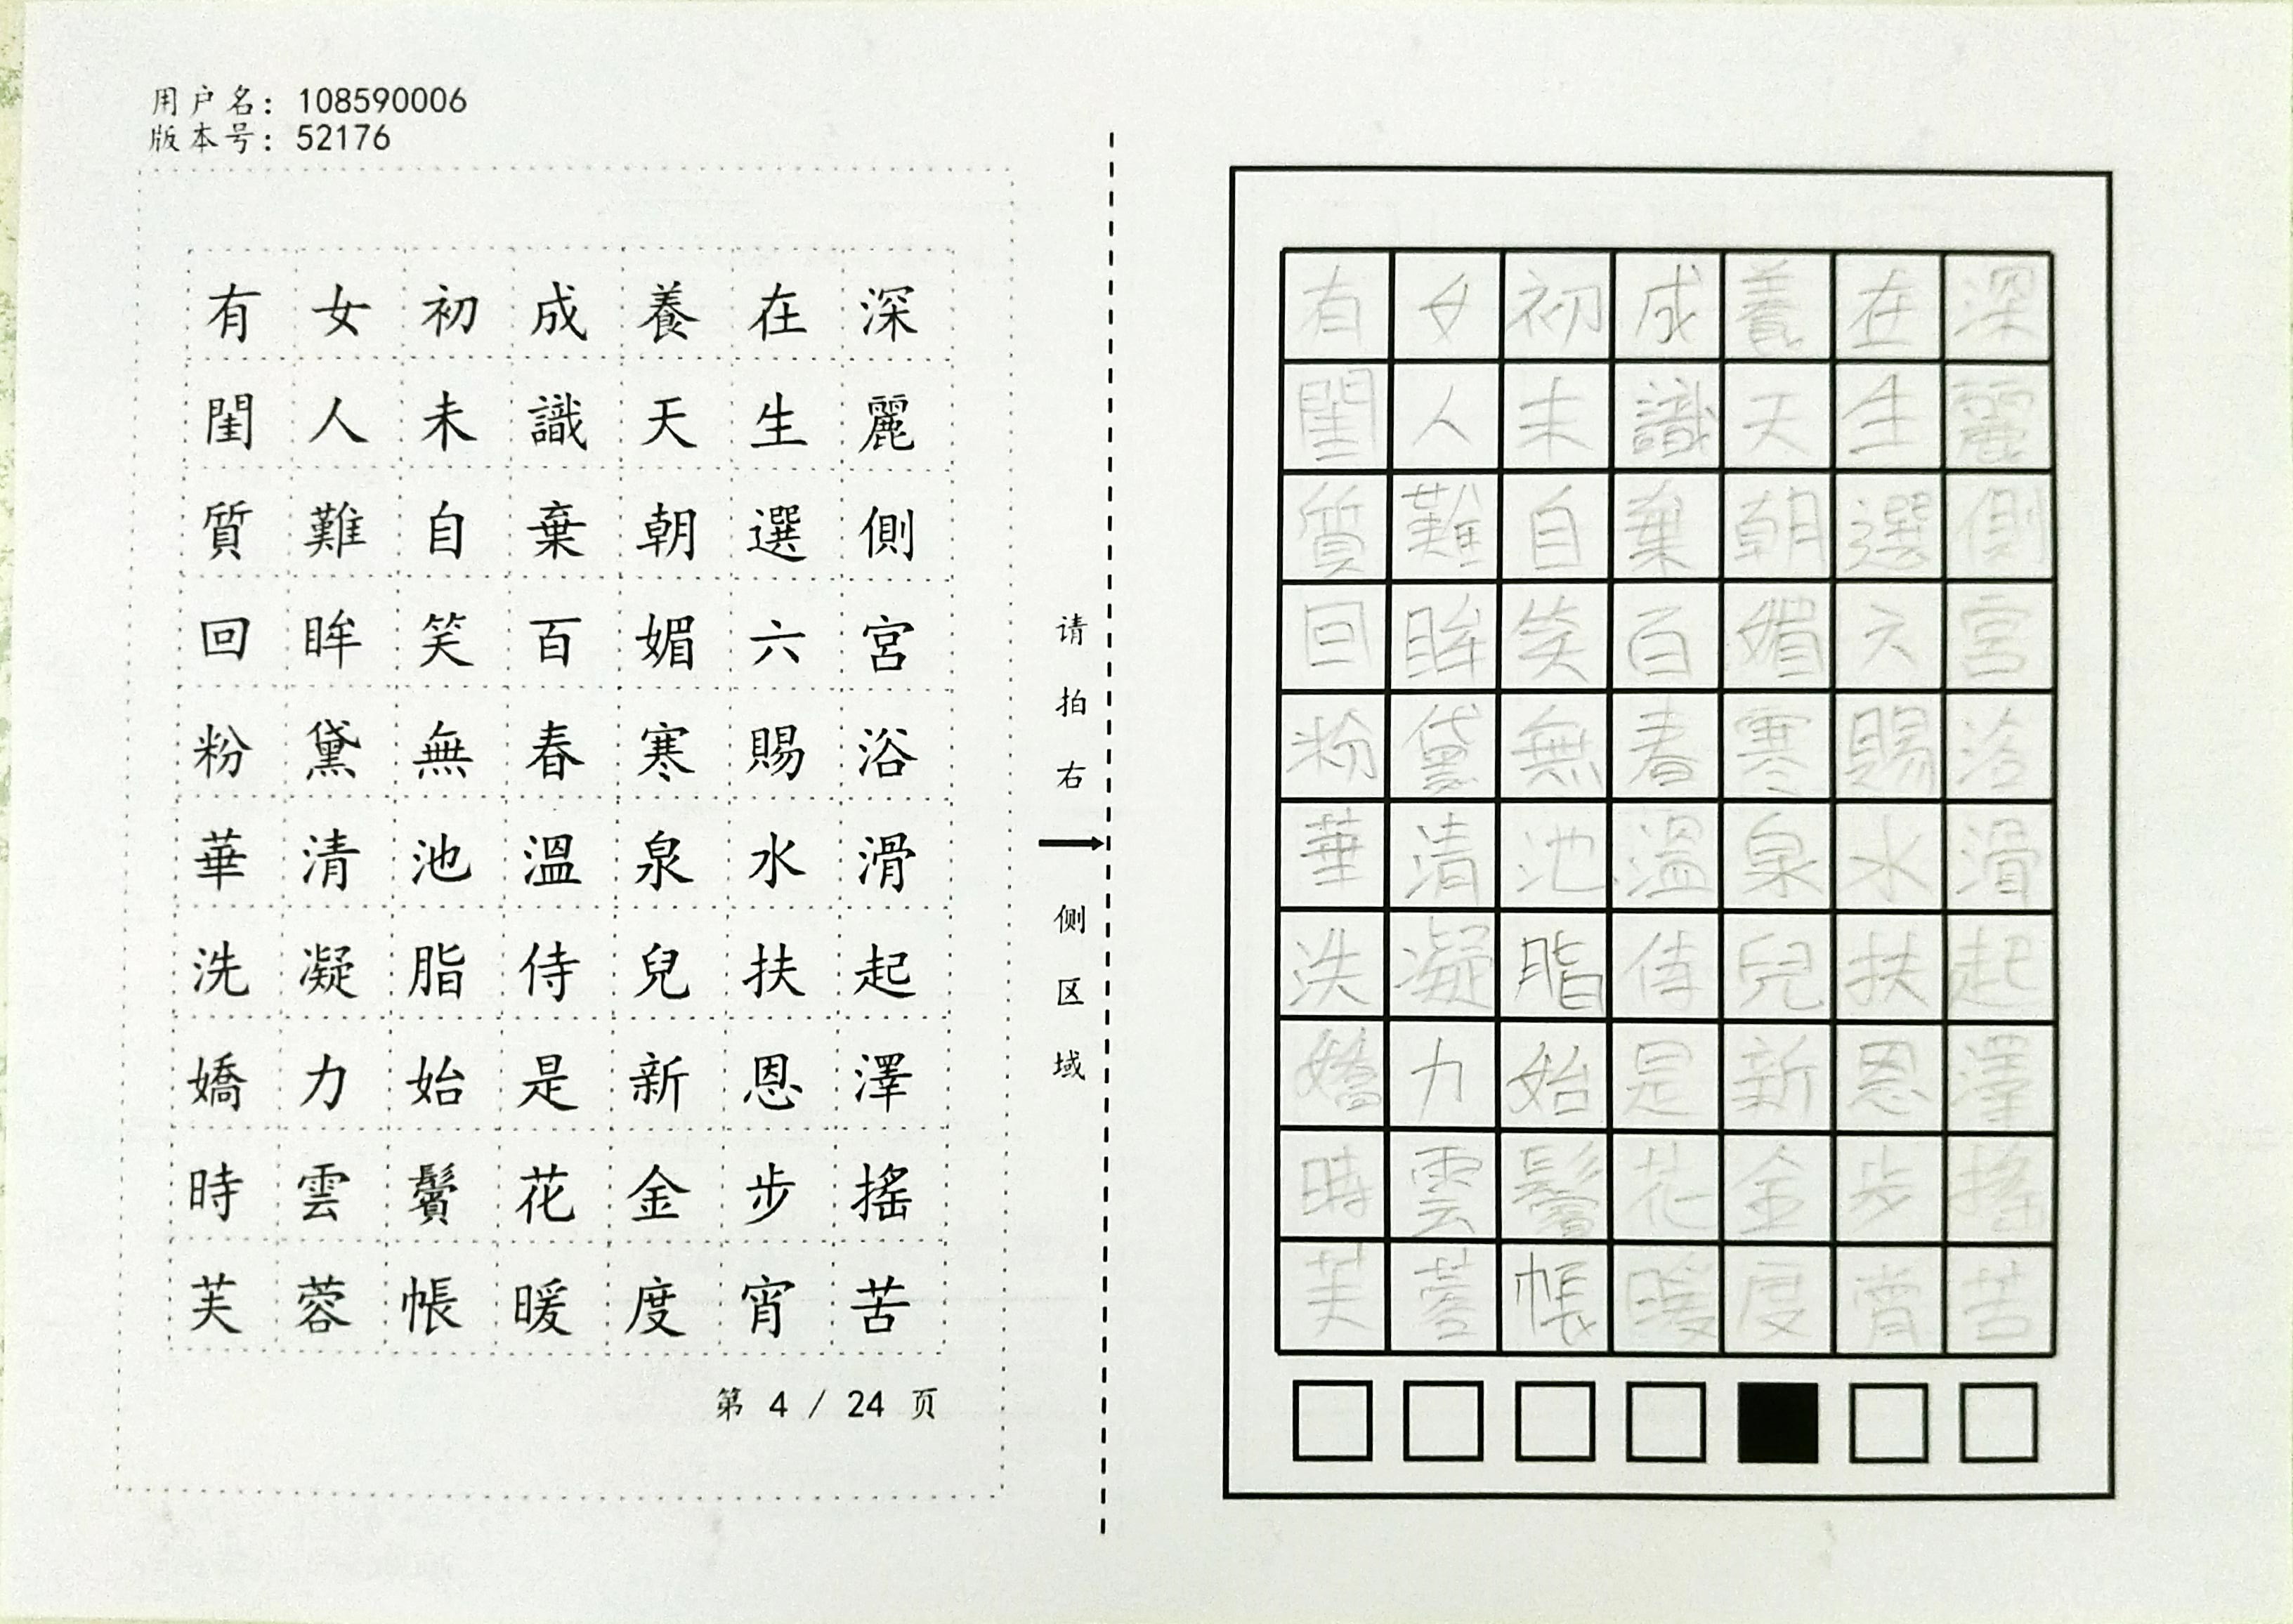 用户名: 108590006
版本号: 52176
有女初成養在深
閨人未識天生麗
質難自棄朝選側
回眸笑百媚六宮
粉黛無春寒賜浴
華清池溫泉水滑
洗凝脂侍兒扶起
嬌力始是新恩澤
時雲鬢花金步搖
芙蓉帳暖度宵苦
第 4 / 24 页
请拍右
侧区域
有女初成養在深
閨人未識天生麗
質難自棄朝選側
回眸笑百媚六宮
粉黛無春寒賜浴
華清池溫泉水滑
洗凝脂侍兒扶起
嬌力始是新恩澤
時雲鬢花金步搖
芙蓉帳暖度宵苦